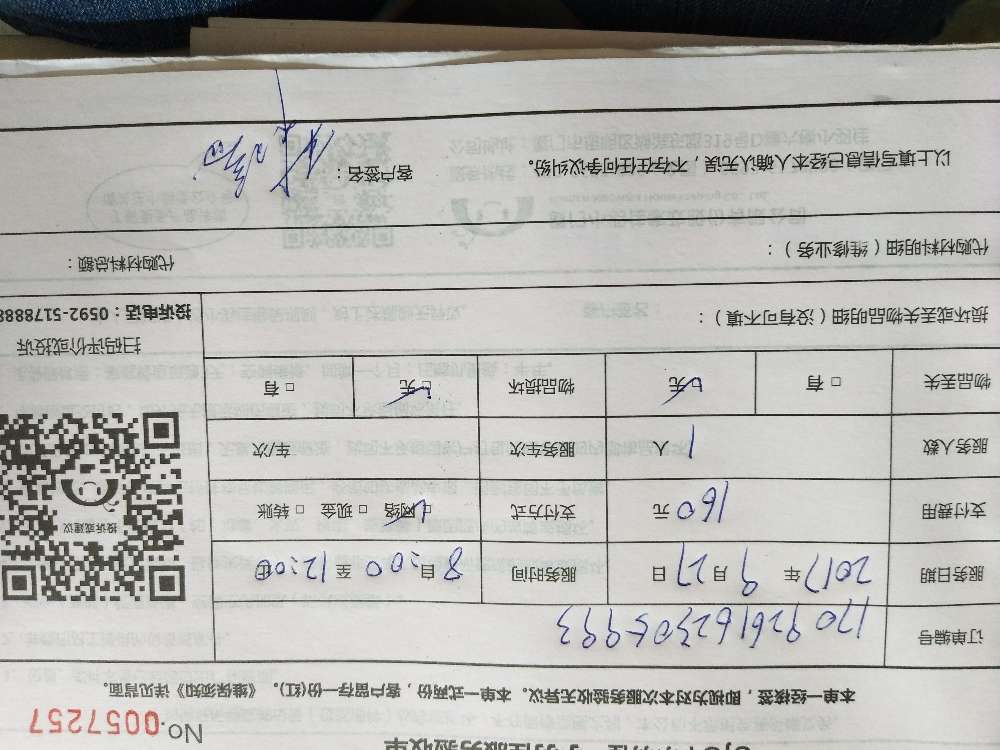 服务验收单
No.0057257
本单一经核签，即视为对本次服务验收无异议。本单一式两份，客户留存一份(红)。《维保须知》详见背面。
订单编号 170926162305993
服务日期 2017 年 9 月 27 日 服务时间 自 8:00 至 12:00
支付费用 160 元 支付方式 □ 网络 □ 现金 □ 转账
服务人数 1 人 服务车次 车/次
物品丢失 □ 有 □ 无 物品损坏 □ 无 □ 有
损坏或丢失物品明细（没有可不填）：
投诉或建议
扫码评价或投诉
投诉电话：0592-5178888
代购材料明细（维修业务）： 代购材料总额：
以上填写信息已经本人确认无误，不存在任何争议纠纷。 客户签名：